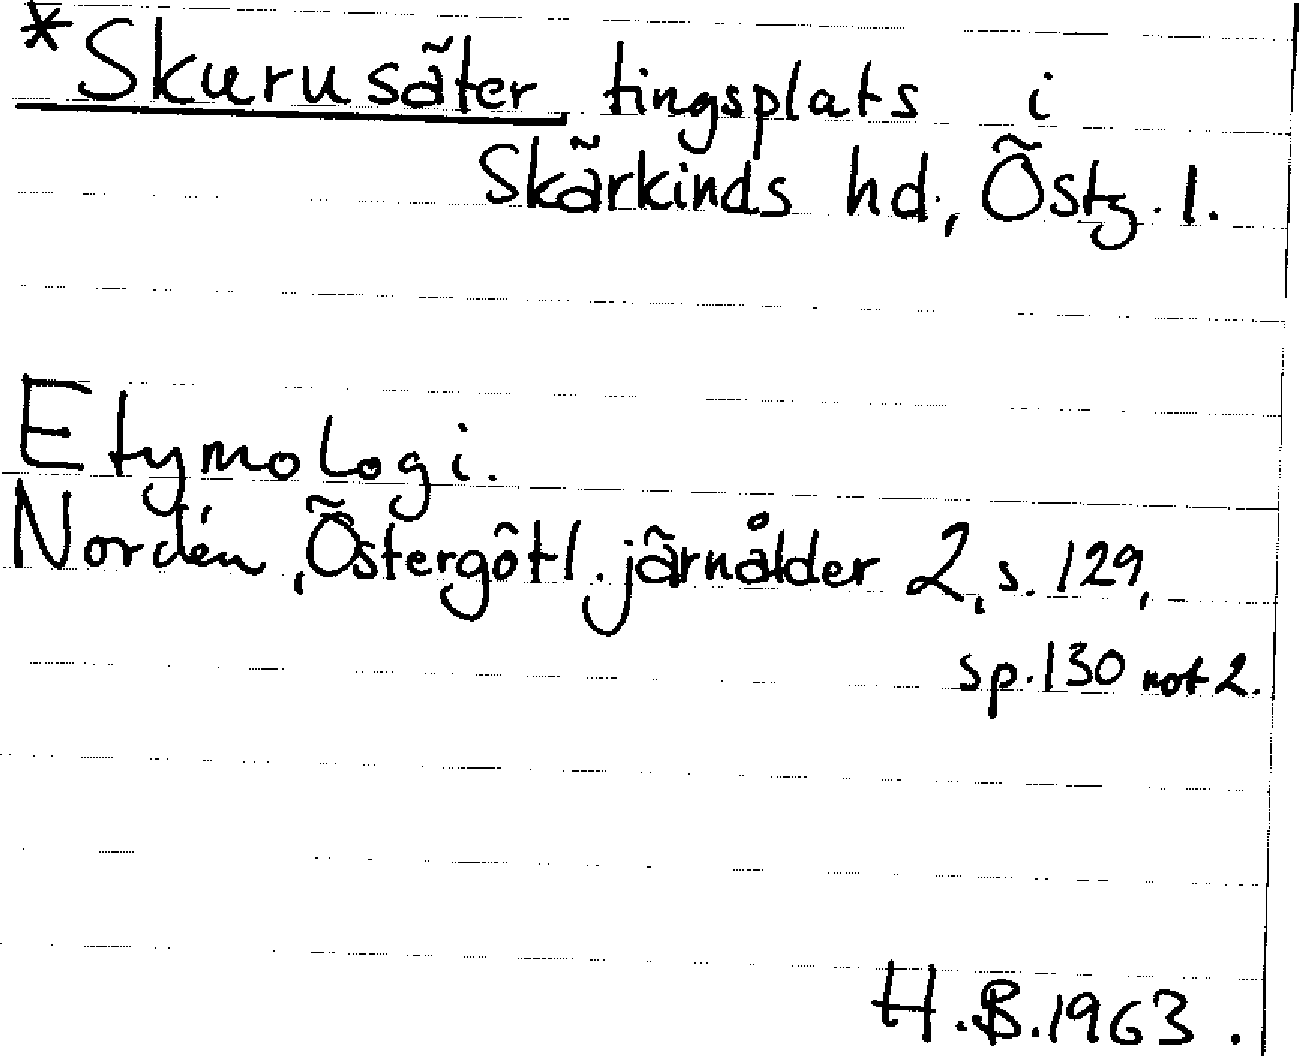 *Skurusäter tingsplats i
Skärkinds hd, Östg. l.
Etymologi.
Nordén, Östergötl. järnålder 2, s. 129,
sp. 130 not 2.
H.B. 1963.